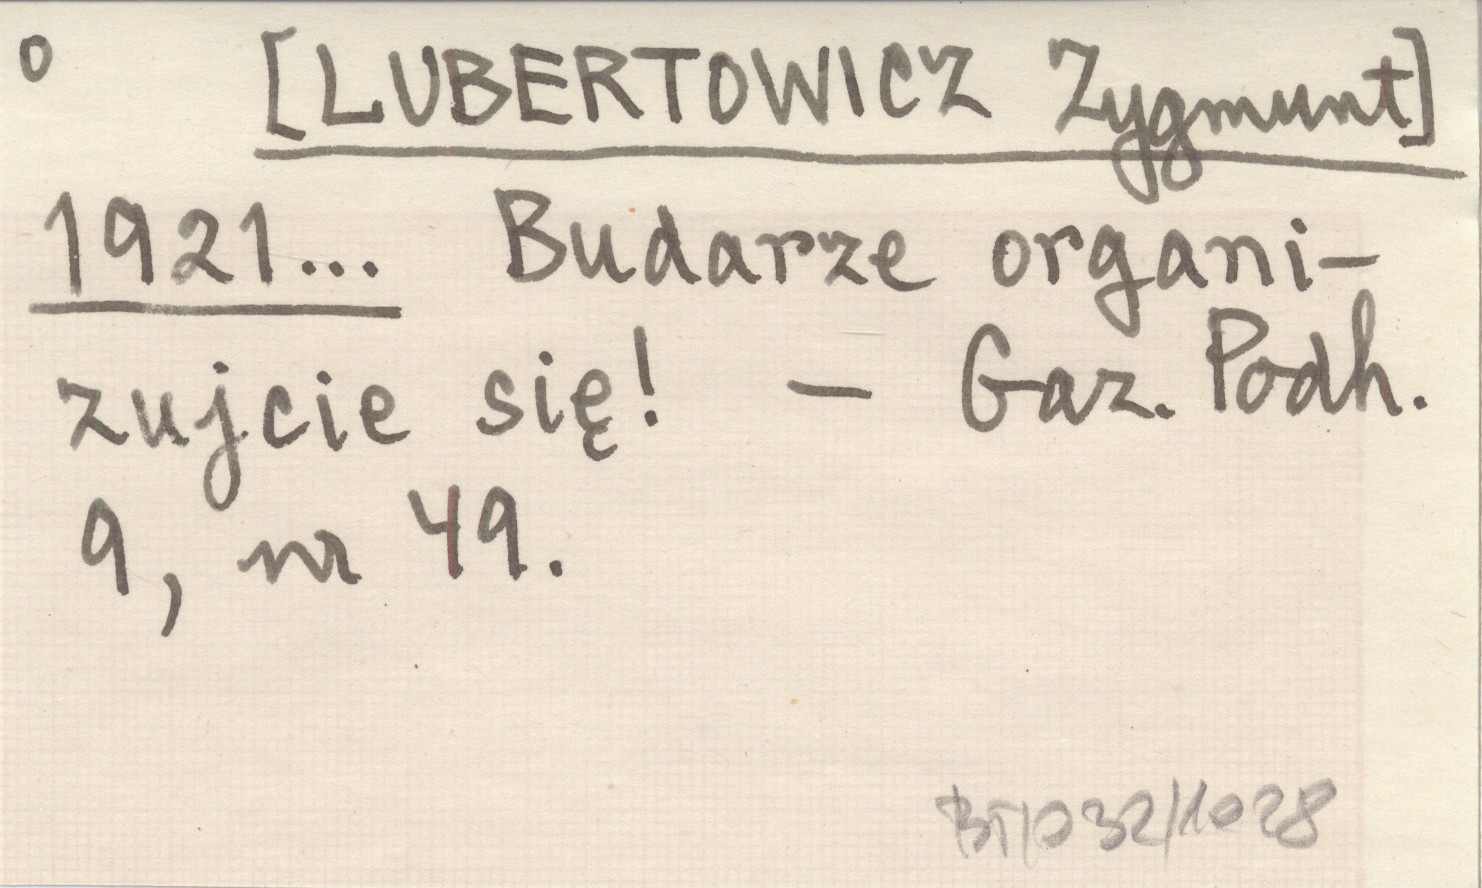 o [LUBERTOWICZ Zygmunt]
1921... Budarze organi-
zujcie się! - Gaz. Podh.
9, nr 49.
BT/032/1028